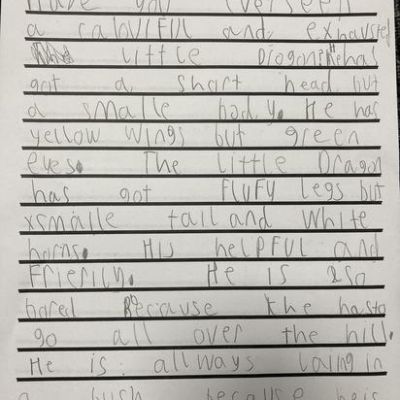 Have you everseen
a caluLFUL and exhausted
little Diogon. He has
got a short head but
a smalle body. He has
yellow wings but green
eyes. The little Dragon
has got flufy legs but
xsmalle tail and white
horns. His helpful and
Frierily. He is aso
bored Because the hasto
go all over the hill.
He is allways laing in
a bush because heis